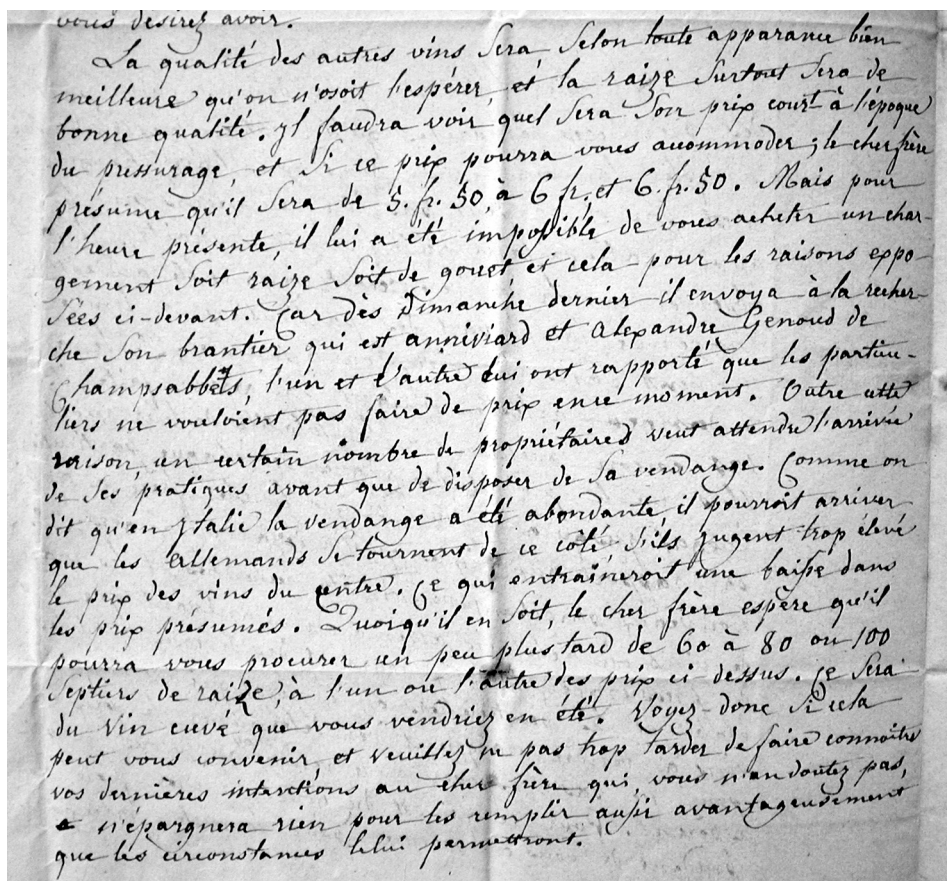 vous désirez avoir.
La qualité des autres vins sera selon toute apparance bien
meilleure qu'on n'osoit l'espérer, et la raize surtout sera de
bonne qualité. Jl faudra voir quel sera son prix court à l'époque
du pressurage, et si ce prix pourra vous accommoder; le cher frère
présume qu'il sera de 5. fr. 50, à 6 fr. et 6. fr. 50. Mais pour
l'heure présente, il lui a été impossible de vous acheter un char-
gement soit raize soit de gouet et cela pour les raisons expo-
sées ci-devant. Car dès Dimanche dernier il envoya à la recher-
che son brantier qui est anniviard et Alexandre Genoud de
Champsabbets, l'un et l'autre lui ont rapporté que les particu-
liers ne vouloient pas faire de prix en ce moment. Outre cette
raison, un certain nombre de propriétaires veut attendre l'arrivée
de ses pratiques avant que de disposer de sa vendange. Comme on
dit qu'en Jtalie la vendange a été abondante il pourroit arriver
que les allemands se tournent de ce côté, s'ils jugent trop élevé
le prix des vins du centre. Ce qui entraîneroit une baisse dans
les prix présumés. Quoiqu'il en soit, le cher frère espère qu'il
pourra vous procurer un peu plus tard de 60 à 80 ou 100
septiers de raize, à l'un ou l'autre des prix ci dessus. Ce sera
du vin cuvé que vous vendriez en été. Voyez-donc si cela
peut vous convenir et veuillez ne pas trop tarder de faire connoître
vos dernières intentions au cher frère qui, vous n'en doutez pas,
n'épargnera rien pour les remplir aussi avantageusement
que les circonstances le lui permettront.